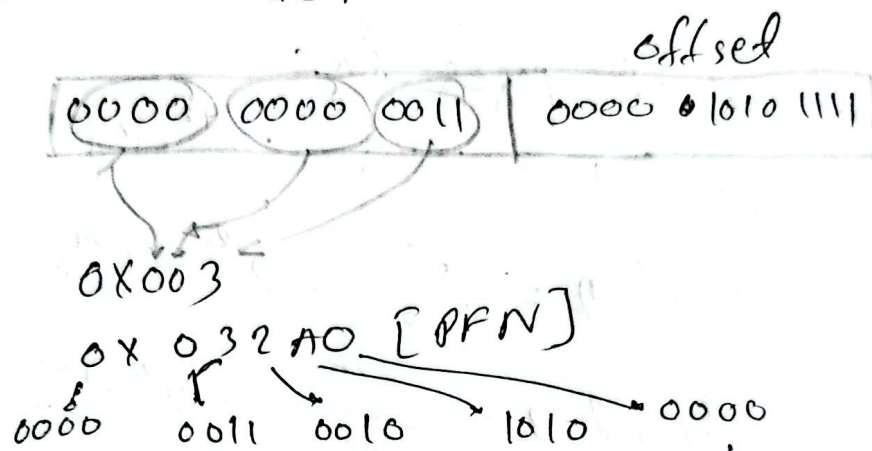 offset
0000 0000 0011 | 0000 1010 1111
0X003
0X 032A0 [PFN]
0000 0011 0010 1010 0000